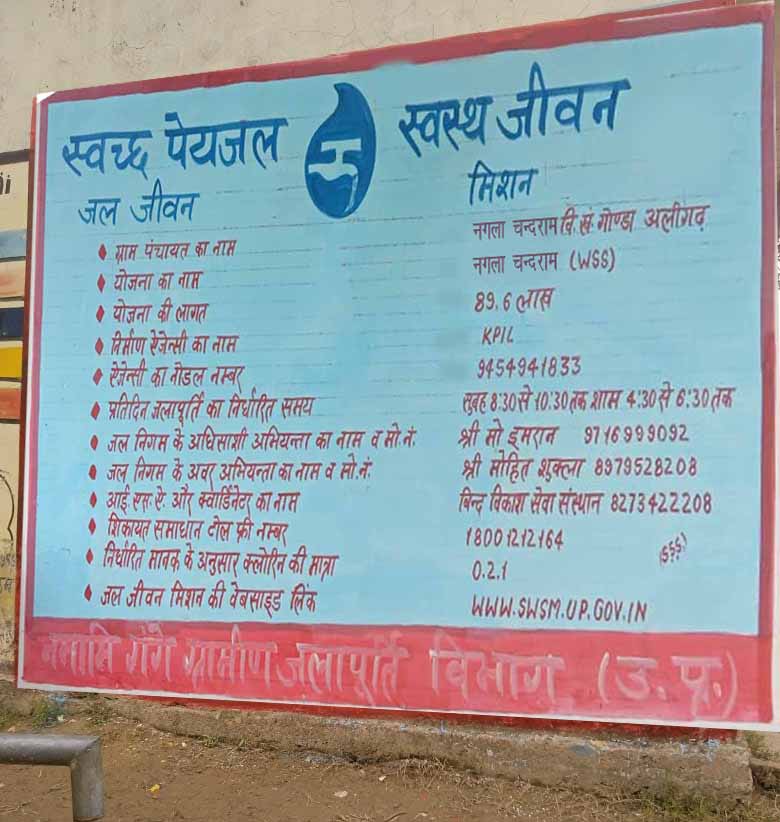 स्वच्छ पेयजल स्वस्थ जीवन
जल जीवन मिशन
ग्राम पंचायत का नाम नगला चन्दराम वि.खं. गोण्डा अलीगढ़
योजना का नाम नगला चन्दराम (WSS)
योजना की लागत 89.6 लाख
निर्माण ऐजेन्सी का नाम KPIL
ऐजेन्सी का नोडल नम्बर 9454941833
प्रतिदिन जलापूर्ति का निर्धारित समय सुबह 8:30 से 10:30 तक शाम 4:30 से 6:30 तक
जल निगम के अधिसाशी अभियन्ता का नाम व मो.नं. श्री मो इमरान 9716999092
जल निगम के अवर अभियन्ता का नाम व मो.नं. श्री मोहित शुक्ला 8979528208
आई.एस.ऐ. और क्वार्डिनेटर का नाम बिन्द विकाश सेवा संस्थान 8273422208
शिकायत समाधान टोल फ्री नम्बर 18001212164
(SSS)
निर्धारित मानक के अनुसार क्लोरिन की मात्रा 0.2.1
जल जीवन मिशन की वेबसाइड लिंक WWW.SWSM.UP.GOV.IN
नमामि गंगे ग्रामीण जलापूर्ति विभाग (उ.प्र.)